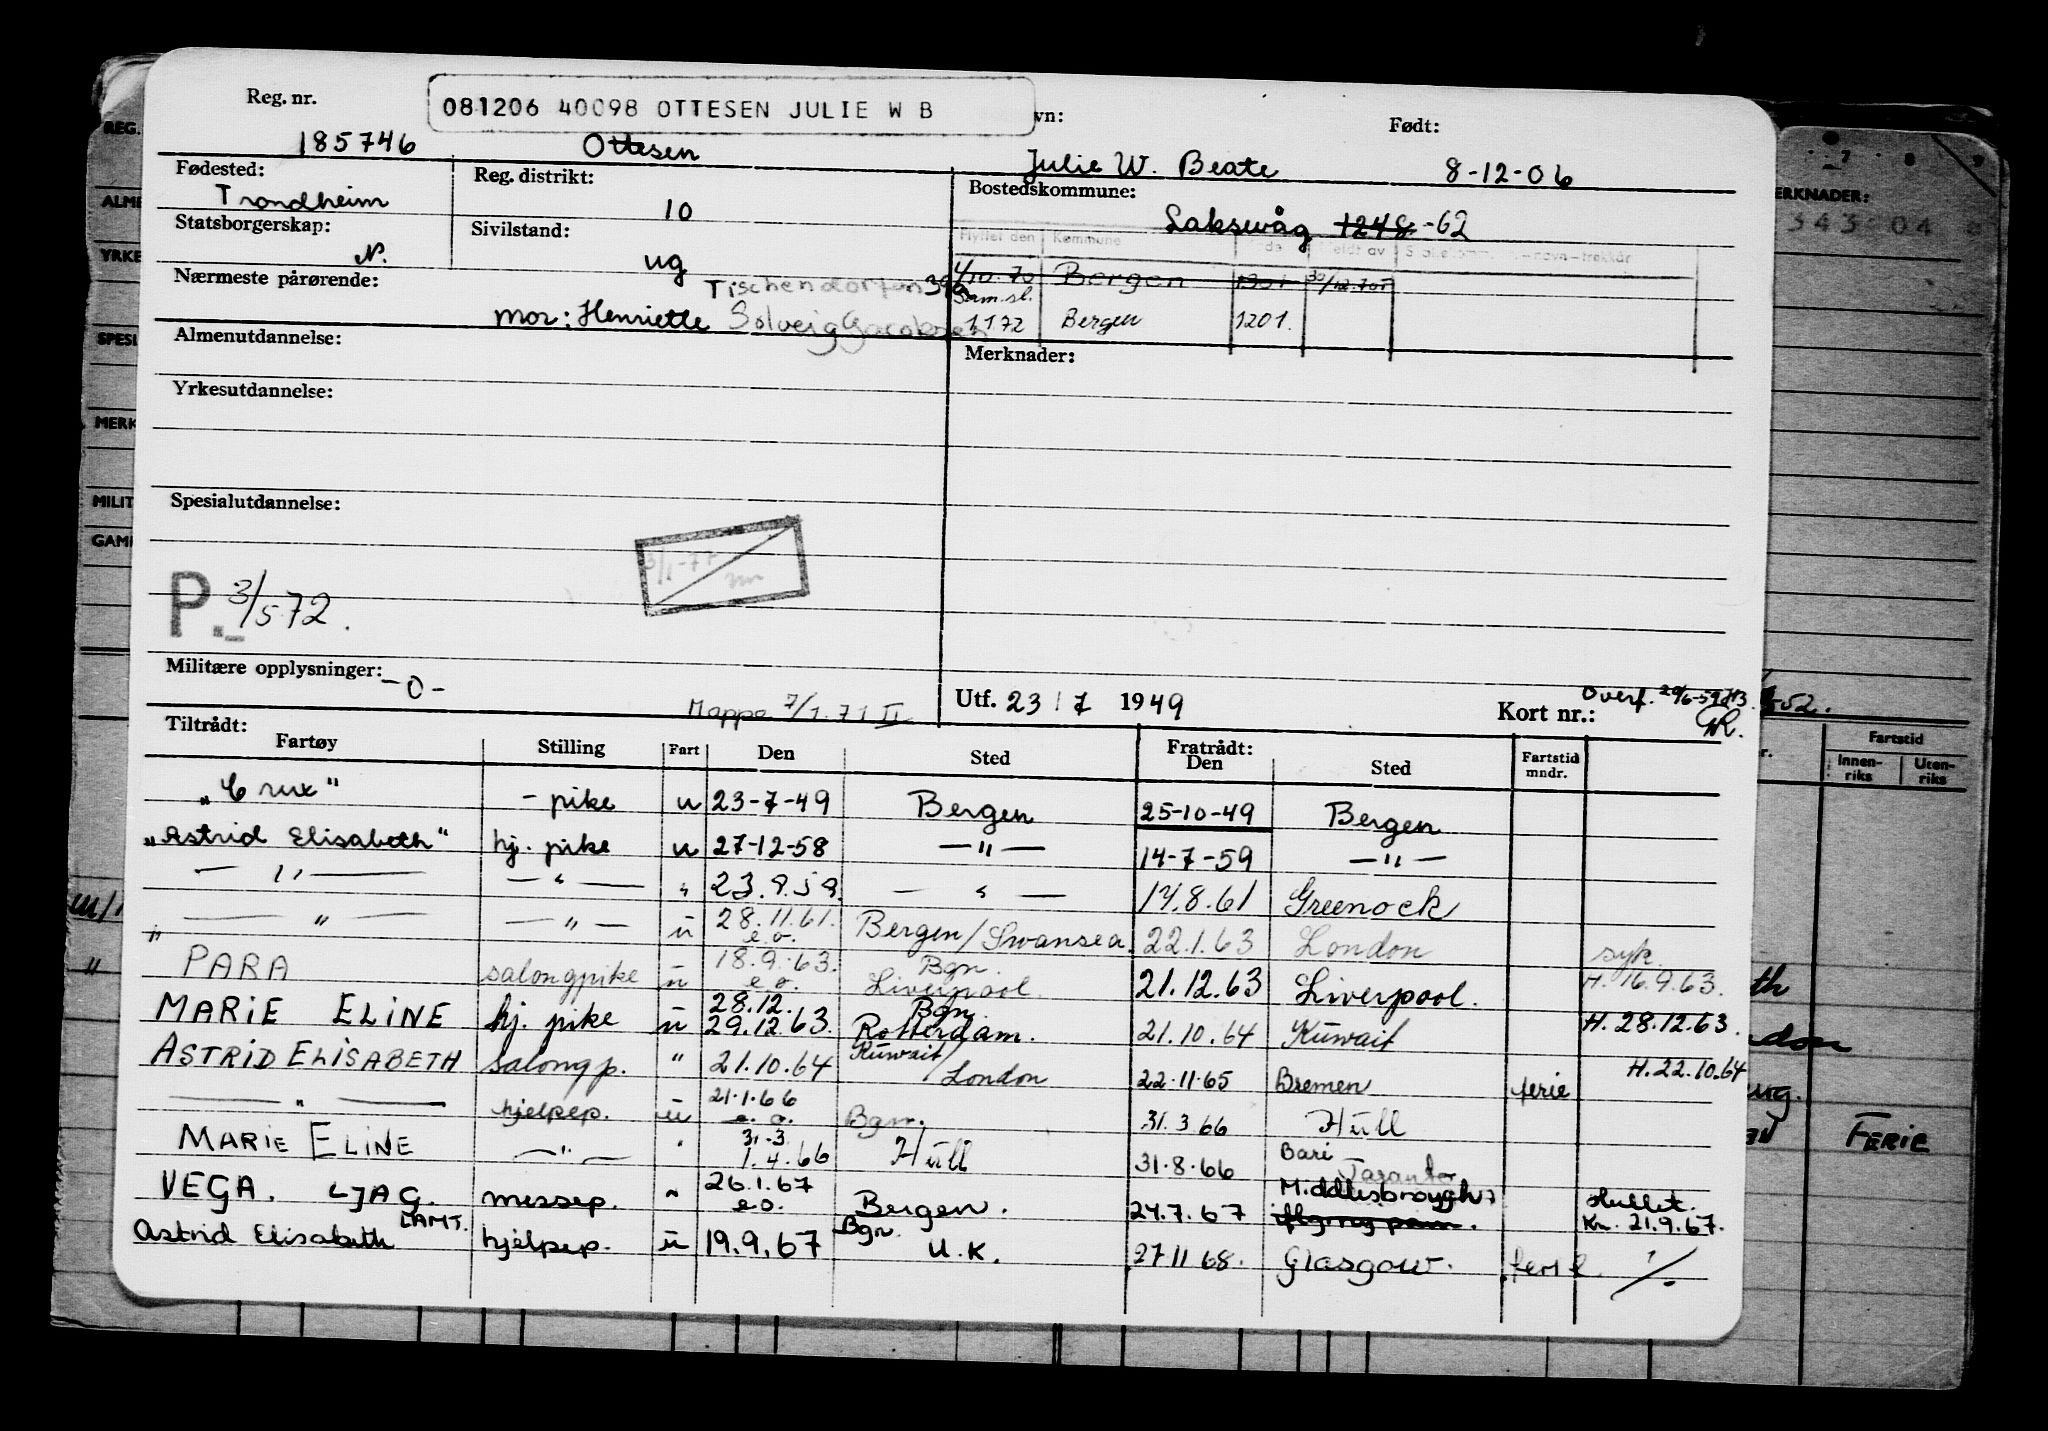 Reg. nr. 081206 40098 OTTESEN JULIE W B vn: Født:
185746 Ottesen Julie W. Beate 8-12-06
Fødested: Reg. distrikt: Bostedskommune:
Trondheim 10 Laksevåg 1248 -62
Statsborgerskap: Sivilstand: Flyttet den Kommune
N. ug 1/10.70 Bergen 1301 30/12.70
Nærmeste pårørende: Sam.sl.
mor: Henriette Solveig 1172 Bergen 1201.
Almenutdannelse: Merknader:
Yrkesutdannelse:
Spesialutdannelse:
3/1-77
P. 3/5.72.
Militære opplysninger: -0-
Mappe 7/1.71 II Utf. 23/7 1949 Kort nr.: Overf.
Tiltrådt: Fratrådt:
Fartøy Stilling Fart Den Sted Den Sted Fartstid mndr.
"Crux" - pike u 23-7-49 Bergen 25-10-49 Bergen
"Astrid Elisabeth" hj. pike u 27-12-58 —"— 14-7-59 —"—
—"— —"— " —"— 17.8.61 Greenock
—"— —"— u 28.11.61. e.o. Bergen/Swansea 22.1.63 London syk.
PARA salongpike u 18.9.63. e.o. Bgn. Liverpool. 21.12.63 Liverpool. H. 16.9.63.
MARIE ELINE hj. pike u 28.12. 29.12.63. Bgn. Rotterdam. 21.10.64 Kuwait H. 28.12.63.
ASTRID ELISABETH salongp. " 21.10.64 Kuwait/London 22.11.65 Bremen ferie H. 22.10.64
—"— hjelpep. u 21.1.66 e.o. Bgn. 31.3.66 Hull
MARIE ELINE —"— " 31.3 1.4.66 Hull 31.8.66 Bari
VEGA. LJAG. messep. " 26.1.67 e.o. Bergen. 24.7.67 Middlesbrough Hullet. Kn. 21.9.67.
Astrid Elisabeth LAMT. hjelpep. u 19.9.67 Bgn. U.K. 27 11 68. Glasgow.
REG.
MERKNADER:
Fartstid
Innen-riks Uten-riks
FERIE